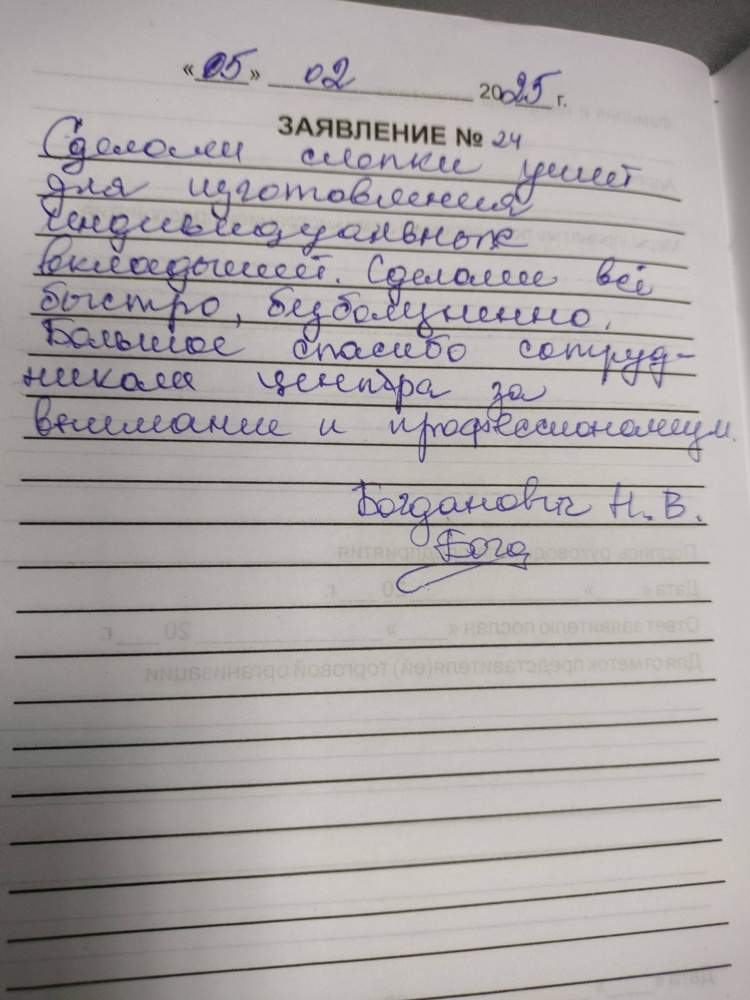 «05» 02 2025 г.
ЗАЯВЛЕНИЕ № 24
Сделали слепки ушей
для изготовления
индивидуальных
вкладышей. Сделали всё
быстро, безболезненно.
Большое спасибо сотруд-
никам центра за
внимание и профессионализм.
Богданович Н. В.
Богд